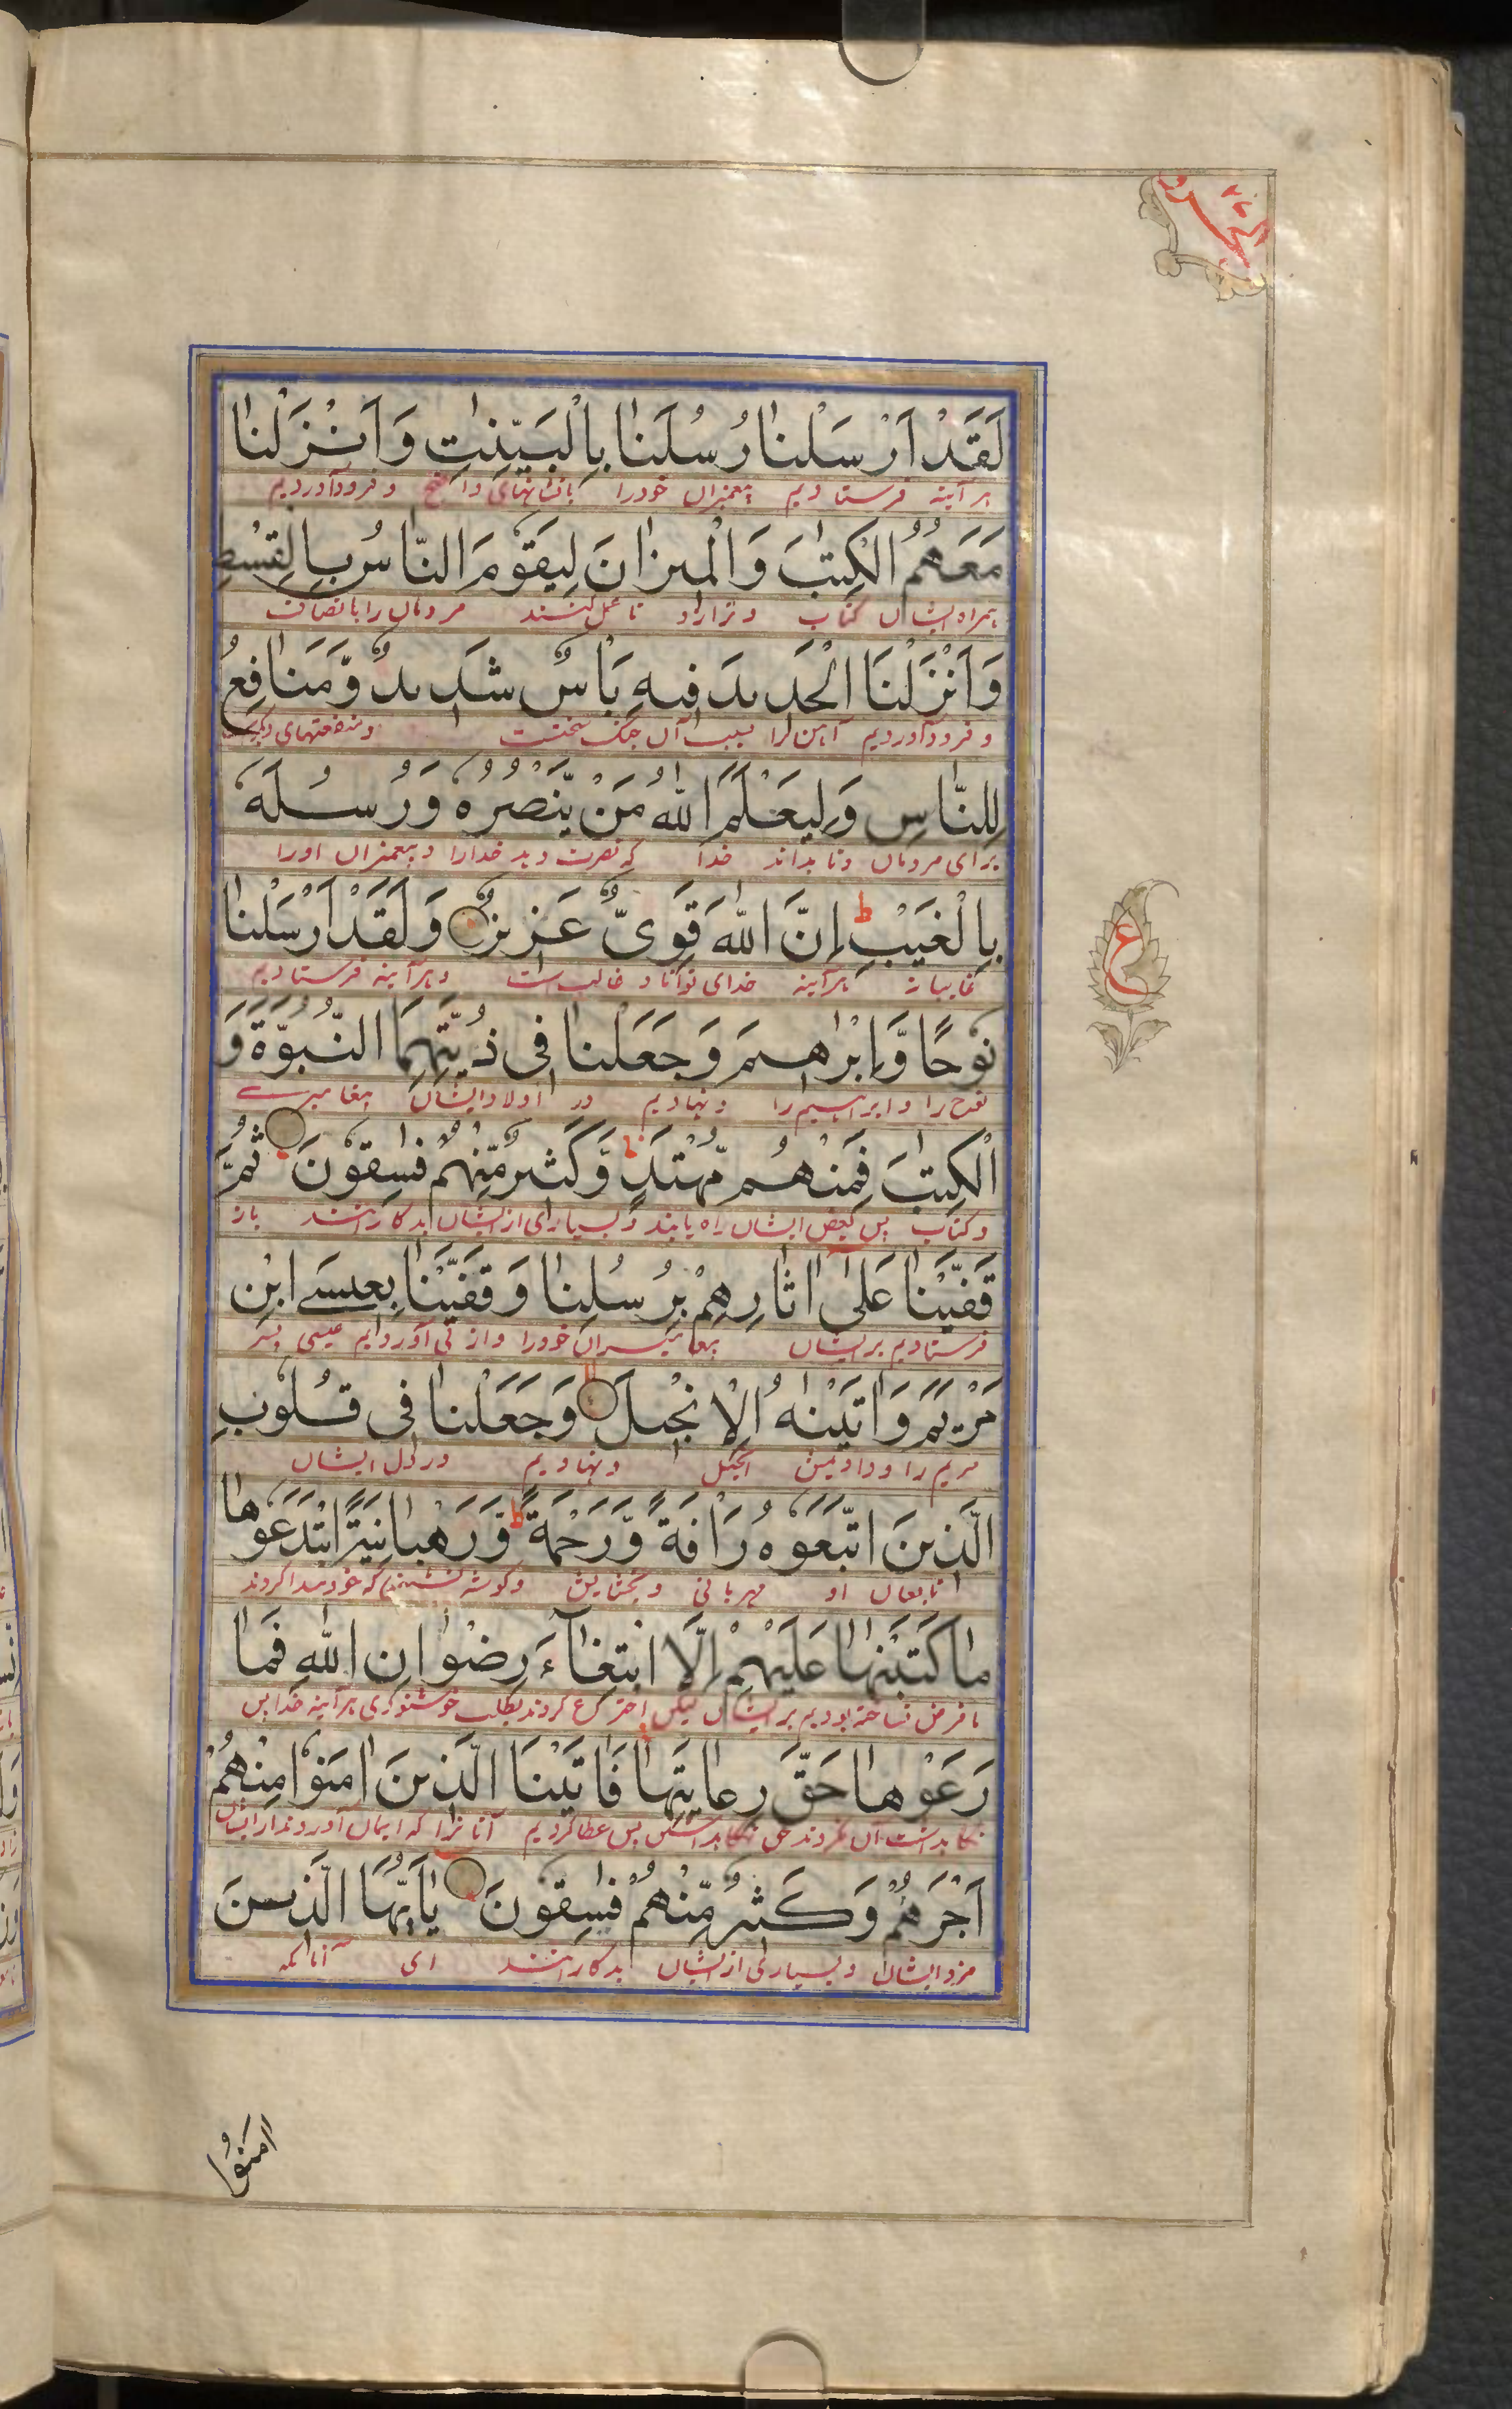 لَقَدْ اَرْسَلْنَا رُسُلَنَا بِالْبَيِّنٰتِ وَاَنْزَلْنَا
هر آینه فرستادیم پیغمبران خودرا بانشانهای واضح و فرود آوردیم
مَعَهُمُ الْكِتٰبَ وَالْمِيْزَانَ لِيَقُوْمَ النَّاسُ بِالْقِسْطِ
همراه ایشان کتاب و ترازو تا عمل کنند مردمان را با نصاف
وَاَنْزَلْنَا الْحَدِيْدَ فِيْهِ بَاْسٌ شَدِيْدٌ وَّمَنَافِعُ
و فرود آوردیم آهن را بسبب آن جنگ سختست و منفعتهای
لِلنَّاسِ وَلِيَعْلَمَ اللّٰهُ مَنْ يَّنْصُرُهٗ وَرُسُلَهٗ
برای مردمان وتا بداند خدا که نصرت دهد خدارا و پیغمبران اورا
بِالْغَيْبِ ط اِنَّ اللّٰهَ قَوِىٌّ عَزِيْزٌ وَلَقَدْ اَرْسَلْنَا
غایبانه هرآینه خدای توانا و غالب است و هرآینه فرستادیم
نُوْحًا وَّاِبْرٰهِيْمَ وَجَعَلْنَا فِىْ ذُرِّيَّتِهِمَا النُّبُوَّةَ وَ
نوح را و ابراهیم را و نهادیم در اولاد ایشان پیغامبرے
الْكِتٰبَ فَمِنْهُمْ مُّهْتَدٍ ط وَّكَثِيْرٌ مِّنْهُمْ فٰسِقُوْنَ ثُمَّ
و کتاب پس بعض ایشان راه یابند و بسیاری از ایشان بدکارانند باز
قَفَّيْنَا عَلٰٓى اٰثَارِهِمْ بِرُسُلِنَا وَقَفَّيْنَا بِعِيْسَے ابْنِ
فرستادیم بر ایشان پیغامبران خودرا و از پی آوردیم عیسی پسر
مَرْيَمَ وَاٰتَيْنٰهُ الْاِنْجِيْلَ وَجَعَلْنَا فِىْ قُلُوْبِ
مریم را و دادیمش انجیل و نهادیم در دل ایشان
الَّذِيْنَ اتَّبَعُوْهُ رَاْفَةً وَّرَحْمَةً ط وَّرَهْبَانِيَّةً ابْتَدَعُوْهَا
تابعان او مهربانی و بخشایش و گوشه نشینی که خود پیدا کردند
مَا كَتَبْنٰهَا عَلَيْهِمْ اِلَّا ابْتِغَآءَ رِضْوَانِ اللّٰهِ فَمَا
ما فرض نساخته بودیم بر ایشان لیکن اختراع کردند بطلب خوشنودی خدا پس
رَعَوْهَا حَقَّ رِعَايَتِهَا فَاٰتَيْنَا الَّذِيْنَ اٰمَنُوْا مِنْهُمْ
پس عطا کردیم آنانرا که ایمان آوردند از ایشان
اَجْرَهُمْ وَكَثِيْرٌ مِّنْهُمْ فٰسِقُوْنَ يٰاَيُّهَا الَّذِيْنَ
مزد ایشان و بسیاری از ایشان بدکارانند ای آنانکه
ع
اٰمَنُوْا